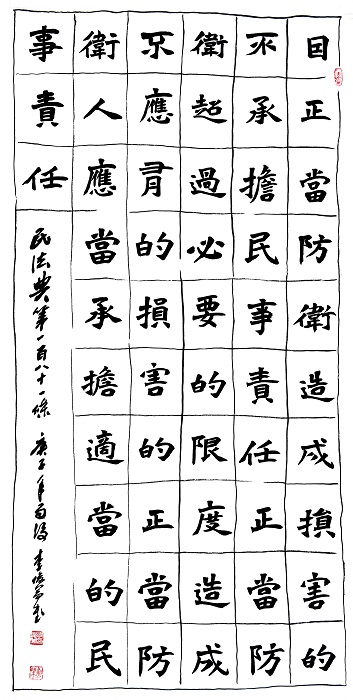 因正當防衛造成損害的
不承擔民事責任正當防
衛超過必要的限度造成
不應有的損害的正當防
衛人應當承擔適當的民
事責任
民法典第一百八十一條 庚子年